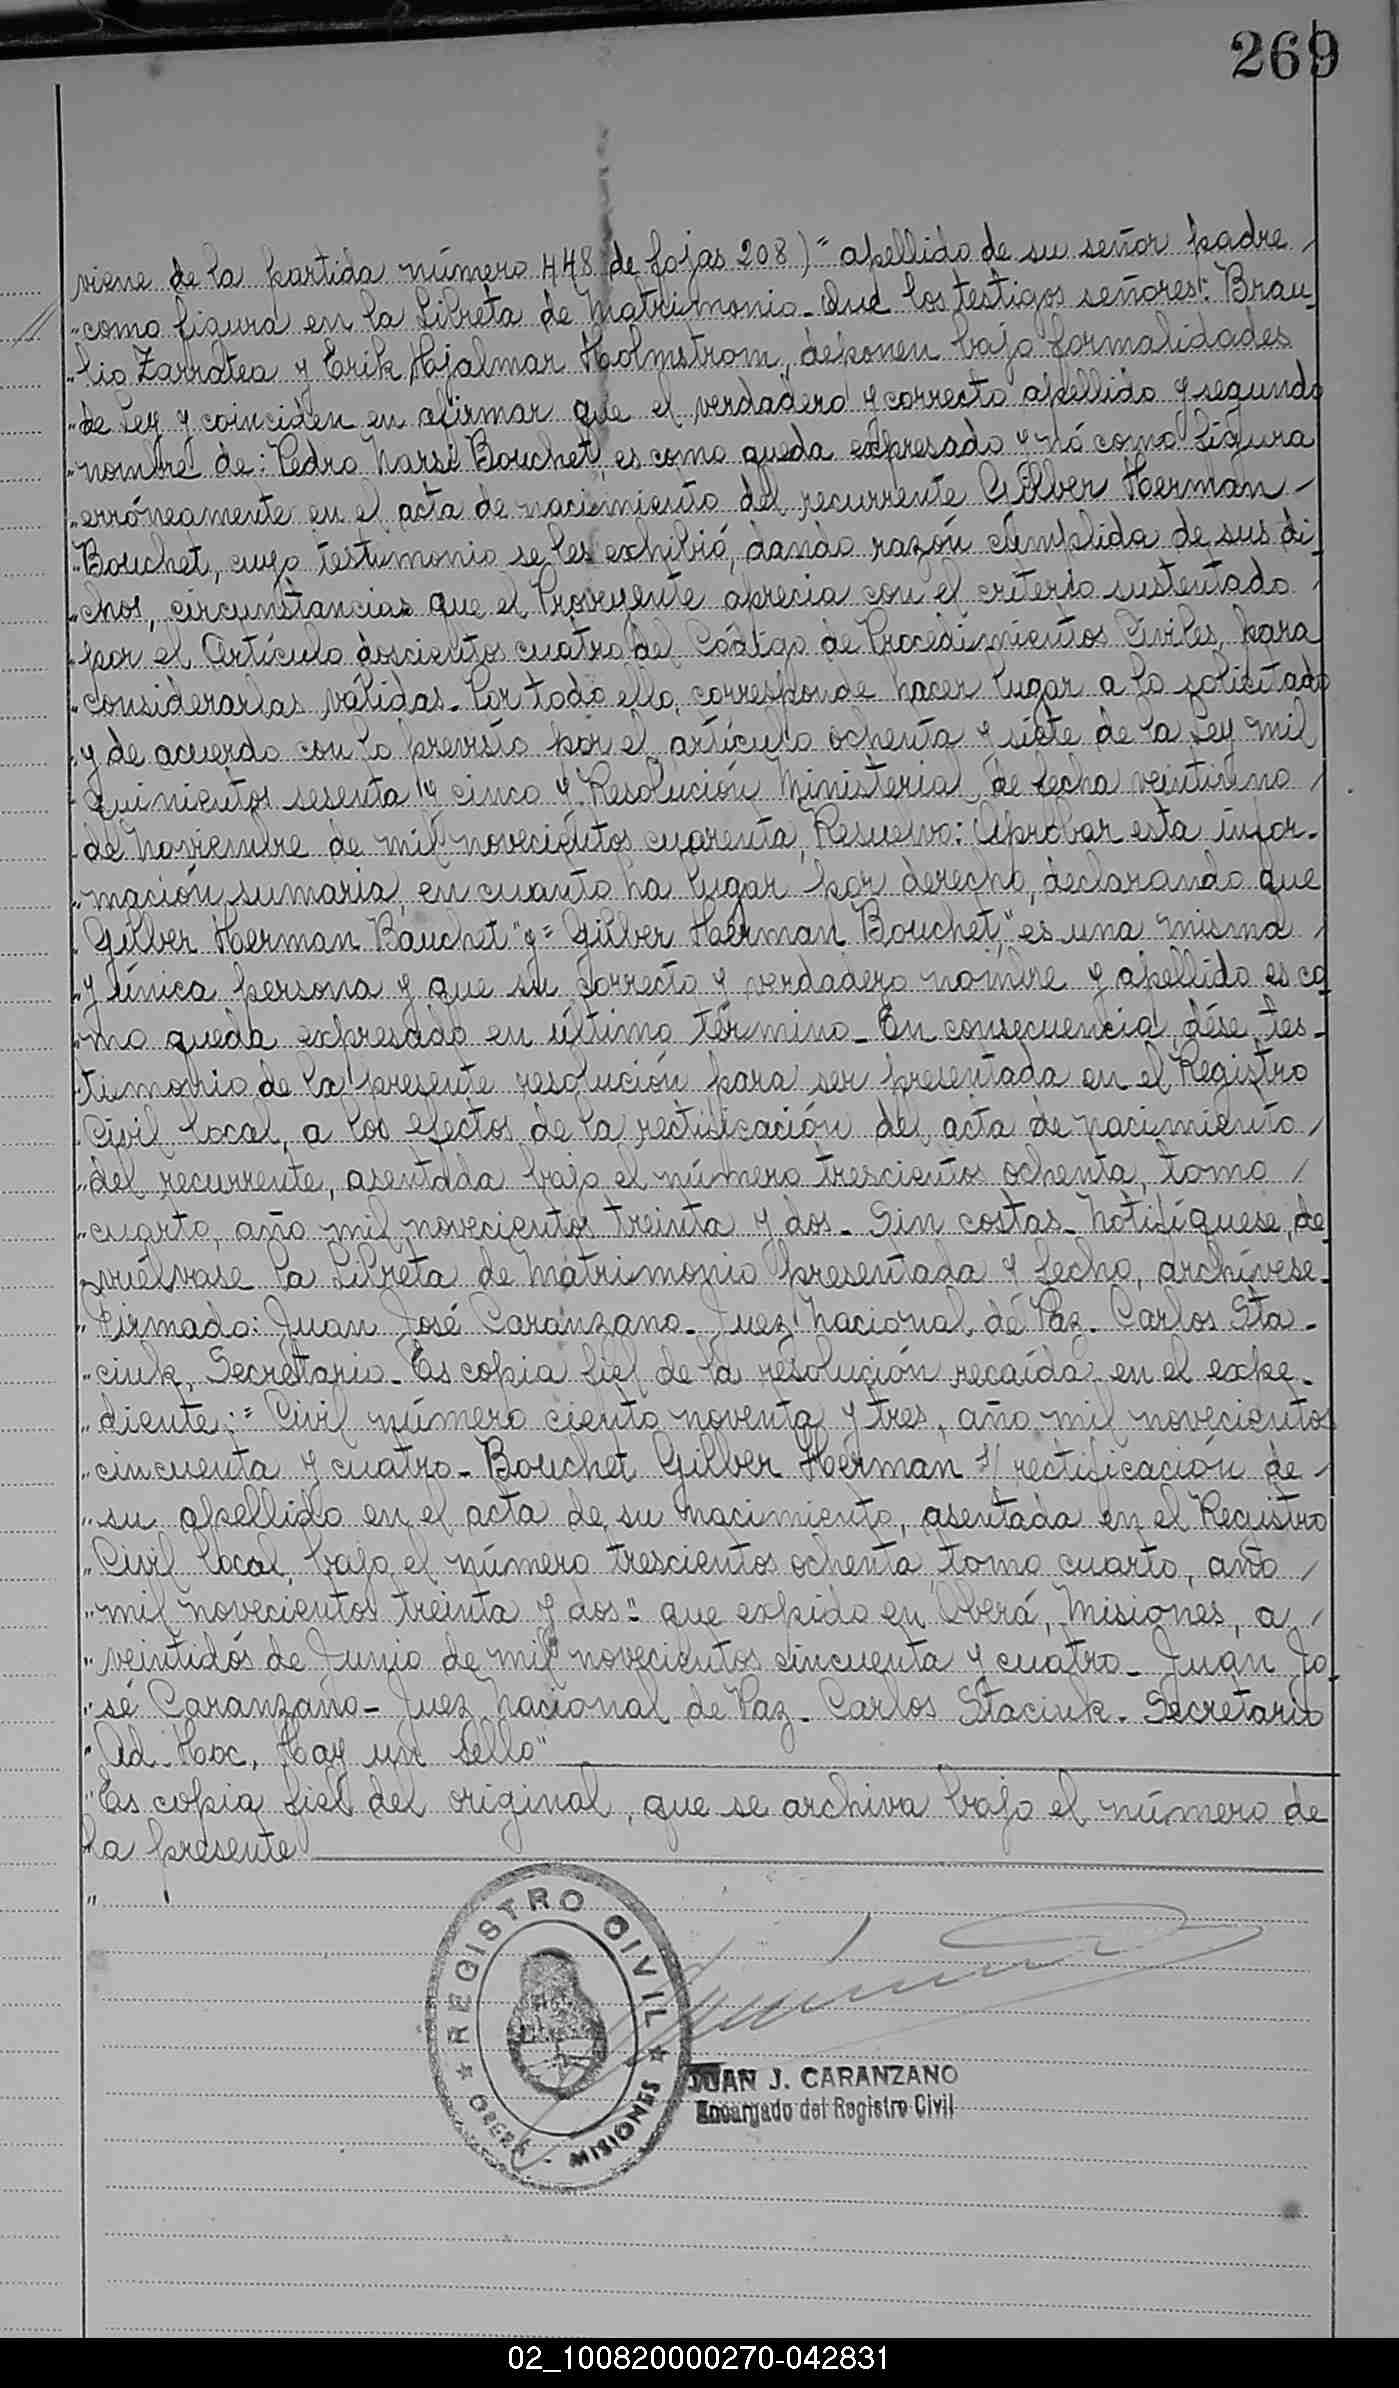 269
viene de la partida número 448 de fojas 208) " apellido de su señor padre /
"como figura en la Libreta de Matrimonio_ Que los testigos señores: Brau_
"lio Zarratea y Erik Hjalmar Holmstrom, deponen bajo formalidades
"de Ley y coinciden en afirmar que el verdadero y correcto apellido y segundo
"nombre de: Pedro Narsi Bouchet, es como queda expresado y nó como figura
"erróneamente en el acta de nacimiento del recurrente Gilber Herman /
"Bouchet, cuyo testimonio se les exhibió, dando razón cumplida de sus di_
"chos, circunstancias que el Proveyente aprecia con el criterio sustentado /
"por el Artículo doscientos cuatro del Código de Procedimientos Civiles, para
"considerarlas válidas_ Por todo ello, corresponde hacer lugar a lo solicitado
"y de acuerdo con lo previsto por el artículo ochenta y siete de la Ley mil
"quinientos sesenta y cinco y Resolución Ministerial de fecha veintiuno /
"de Noviembre de mil novecientos cuarenta, Resuelvo: Aprobar esta infor_
"mación sumaria, en cuanto ha lugar por derecho, declarando que
"Gilber Herman Bauchet" y = Gilber Herman Bouchet," es una misma /
"y única persona y que su correcto y verdadero nombre y apellido es co
"mo queda expresado en último término_ En consecuencia, dése tes_
"timonio de la presente resolución para ser presentada en el Registro
"Civil local, a los efectos de la rectificación del acta de nacimiento /
"del recurrente, asentada bajo el número trescientos ochenta, tomo /
"cuarto, año mil novecientos treinta y dos_ Sin costas_ Notifíquese, de
"vuélvase la Libreta de Matrimonio presentada y fecho, archívese_
"Firmado: Juan José Caranzano_ Juez Nacional de Paz_ Carlos Sta_
"ciuk, Secretario_ Es copia fiel de la resolución recaída en el expe_
"diente: = Civil número ciento noventa y tres, año mil novecientos
"cincuenta y cuatro_ Bouchet Gilber Herman s/ rectificación de /
"su apellido en el acta de su nacimiento, asentada en el Registro
"Civil local, bajo el número trescientos ochenta, tomo cuarto, año /
"mil novecientos treinta y dos" que expido en Oberá, Misiones, a /
"veintidós de Junio de mil novecientos cincuenta y cuatro_ Juan Jo_
"sé Caranzano_ Juez Nacional de Paz_ Carlos Staciuk_ Secretario
"Ad_Hoc. Hay un sello"
"Es copia fiel del original, que se archiva bajo el número de
la presente
"
REGISTRO CIVIL
OBERÁ - MISIONES
JUAN J. CARANZANO
Encargado del Registro Civil
02_100820000270-042831